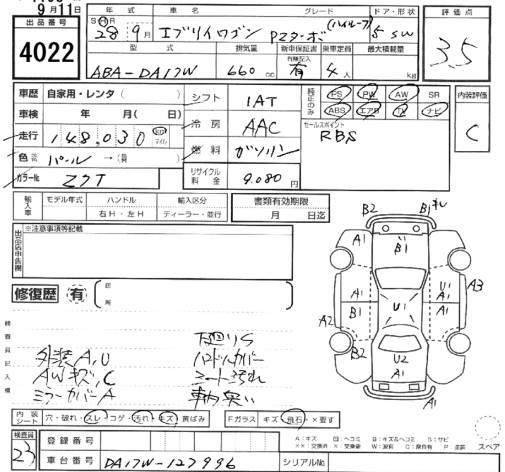 9月11日
出品番号
4022
年式 車名 グレード ドア・形状 評価点
S H R 28年9月 エブリイワゴン PZターボ (ハイルーフ) 5 SW 3.5
型式 排気量 新車保証書 乗車定員 最大積載量
有無記入
ABA-DA17W 660 cc 有 4人 kg
車歴 自家用・レンタ( )
シフト 1AT
純正のみ PS PW AW SR
ABS エアB ナビ
内装評価
C
車検 年 月( 日)
冷房 AAC
セールスポイント
RBS
走行 148,030 km マイル
色 パール →( 色)
燃料 ガソリン
カラーNo ZVT
リサイクル料金 9,080円
輸入車 モデル年式 ハンドル 輸入区分
右H・左H ディーラー・並行
書類有効期限
月 日迄
出品店申告欄
※注意事項等記載
修復歴 有
箇所
検査員記入欄
下廻りS
外装A,U ハンドルカバー
AWキズ,C シート汚れ
ミラーカバーA 車内臭い
B2 B1
A1 B1 A1
U1 A3
A1 A1
A2 B1 U1 A1
B2 U2
A1 A1
A1
内装シート 穴・破れ・スレ・コゲ・汚れ・キズ・黄ばみ
Fガラス キズ・飛石・×要す
検査員
23
登録番号
A:キズ U:ヘコミ B:キズ&ヘコミ S:サビ
スペア
車台番号 DA17W-127996
シリアルNo.